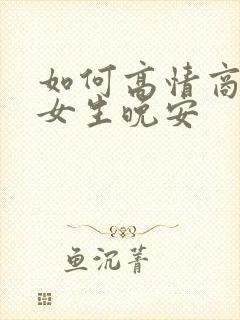 如何高情商
女生晚安
鱼沉菁